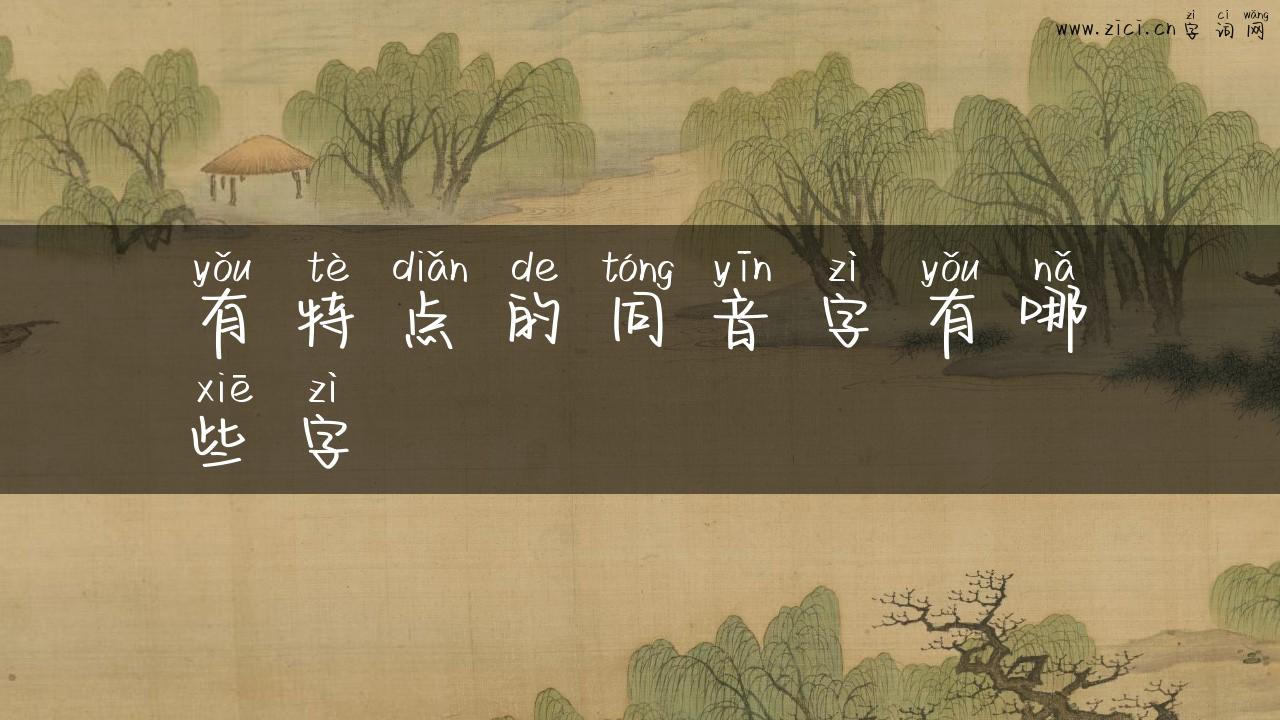 zì cí wǎng
www.zici.cn字词网
yǒu tè diǎn de tóng yīn zì yǒu nǎ
有特点的同音字有哪
xiē zì
些字